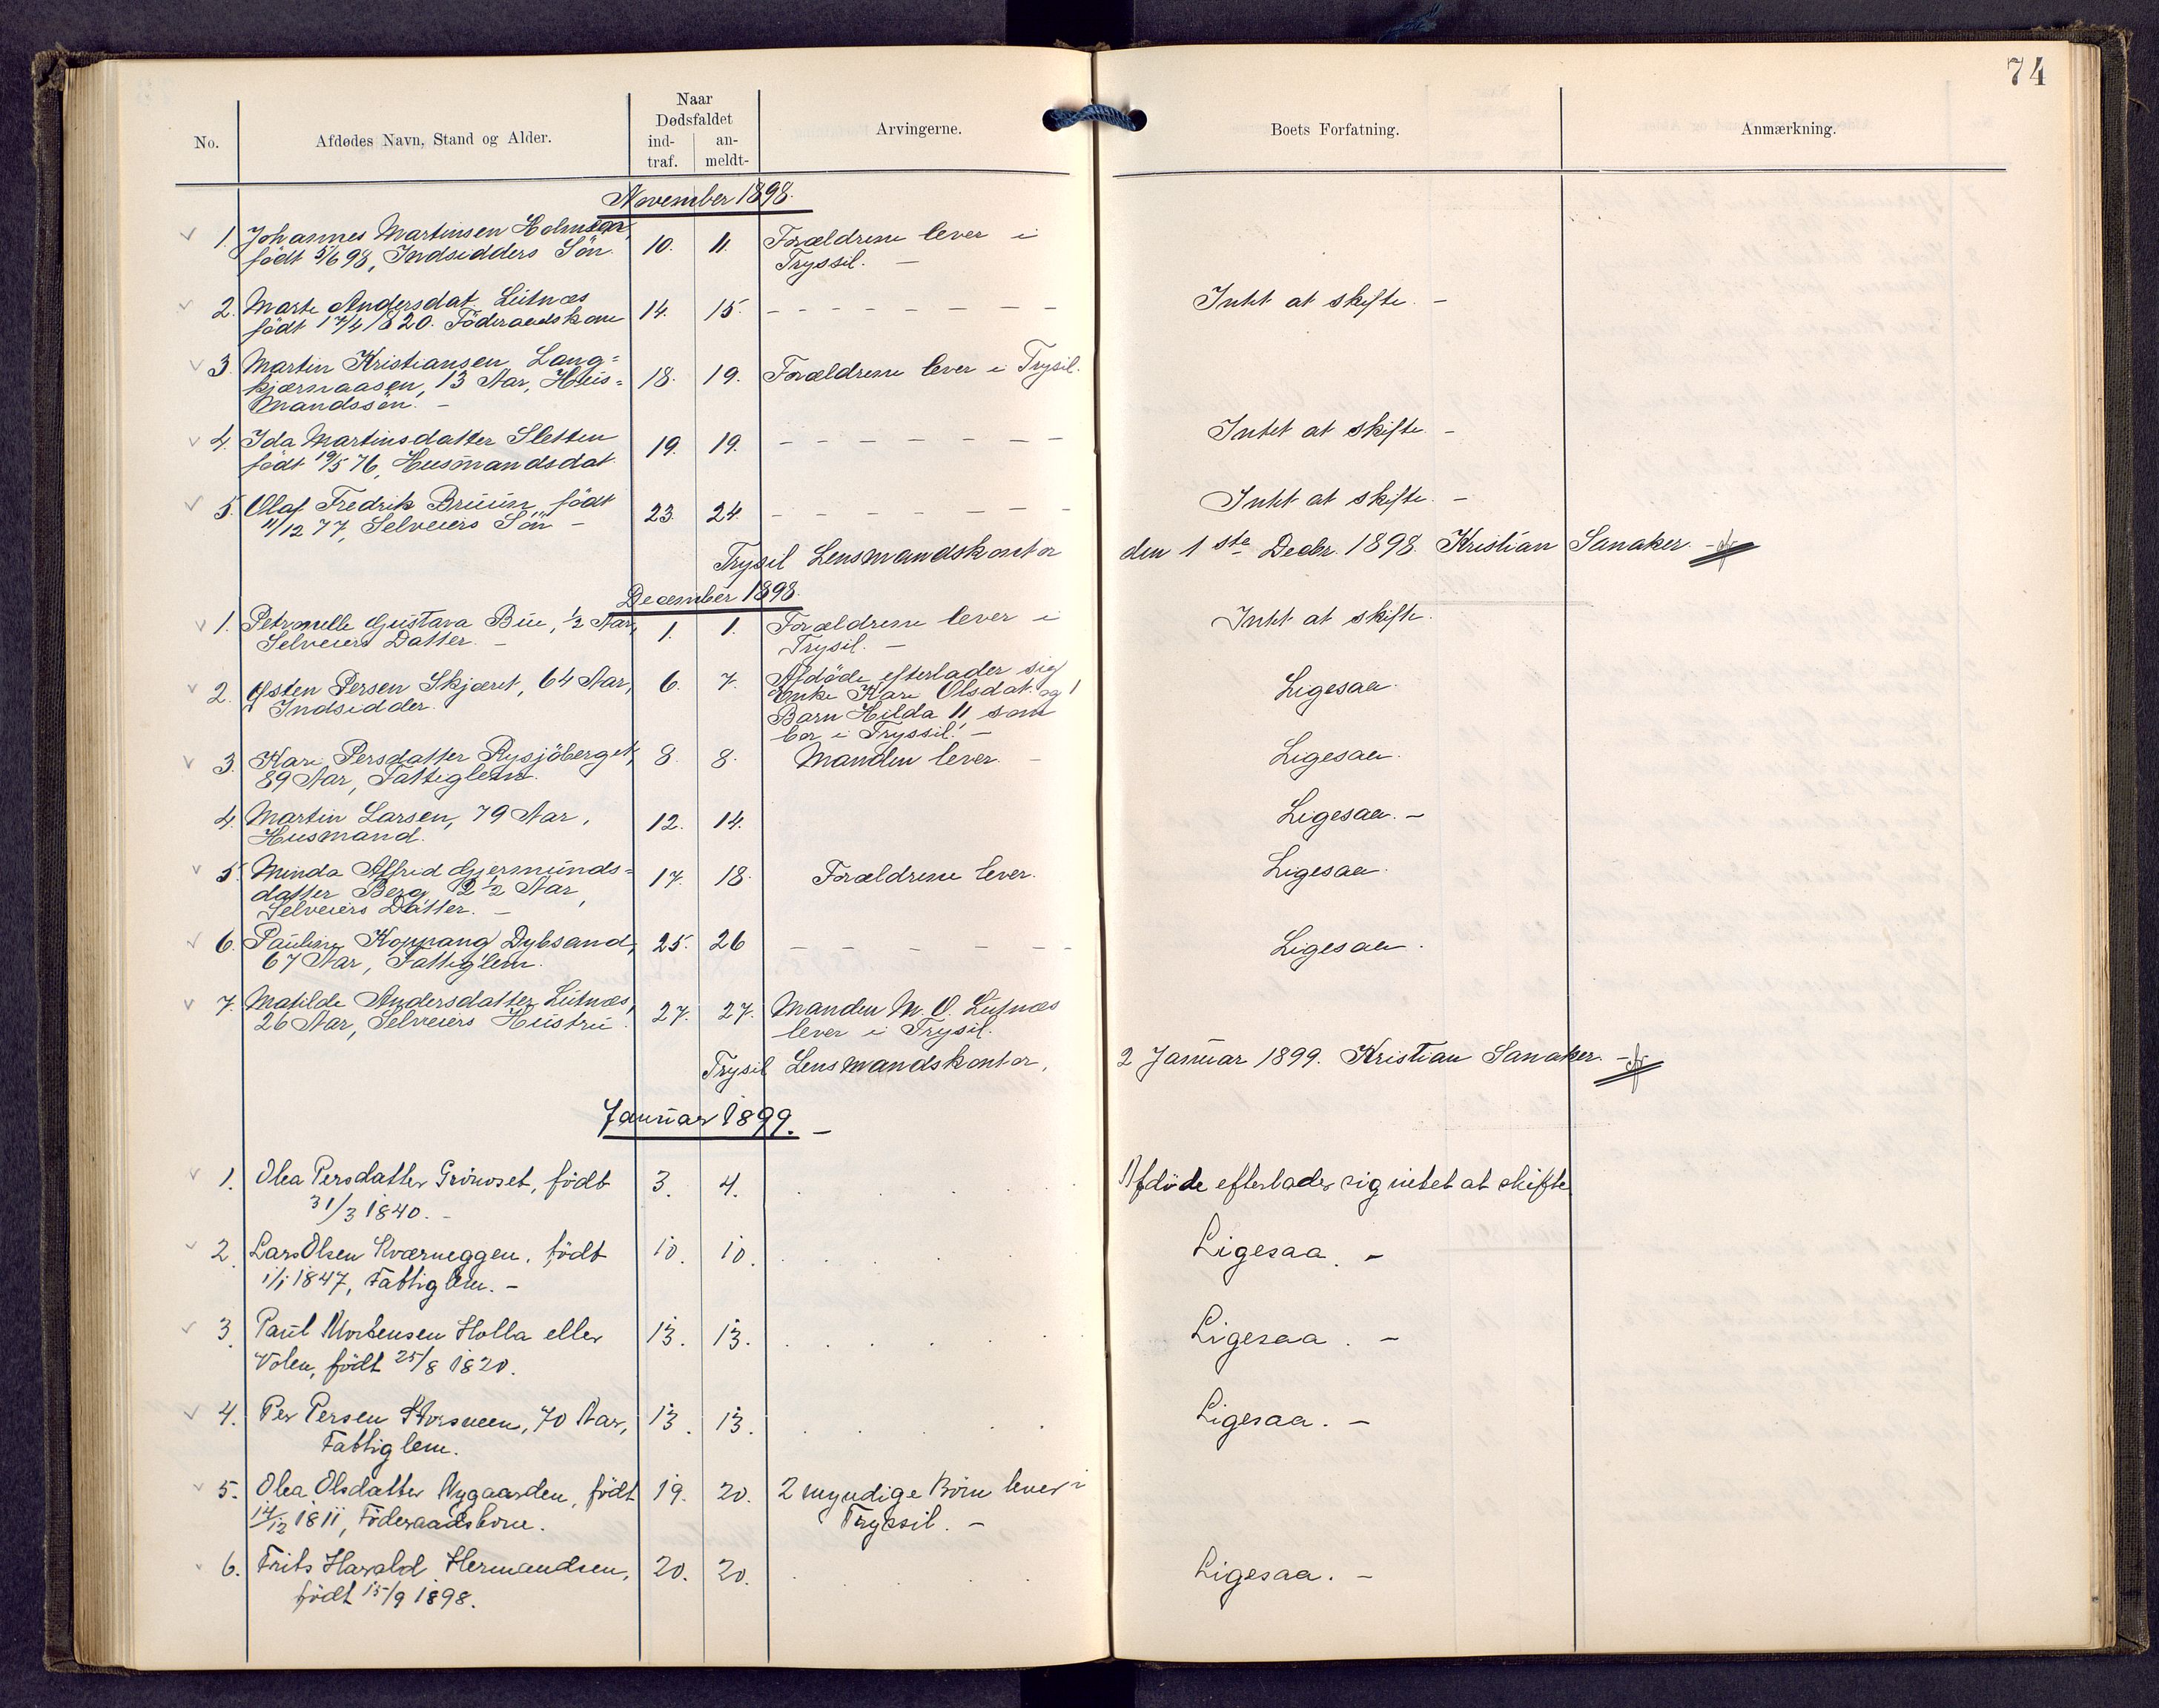 74
No.
Afdødes Navn, Stand og Alder.
Naar
Dødsfaldet
ind-
traf.
an-
meldt-
Arvingerne.
Boets Forfatning.
Anmærkning.
November 1898.
1. Johannes Martinsen
født 5/6 98, Indsidders Søn. 10. 11. Forældrene lever i
Tryssil. –
2. Marte Andersdat. Lutnæs
født 17/4 1820. Föderaadskone 14. 15. – – – – – – – Intet at skifte. –
3. Martin Kristiansen Lang=
kjærnaasen, 13 Aar, Hus= 18. 19. Forældrene lever i Trysil.
mandssøn. –
4. Ida Martinsdatter Sletten 19. 19. – – – – – – – – Intet at skifte. –
født 19/5 76, Husmandsdat.
5. Olaf Fredrik Bruun, født 23. 24. – – – – – – – – Intet at skifte. –
11/12 77, Selveiers Søn –
Trysil Lensmandskontor den 1ste Decbr. 1898. Kristian Sanaker. –
December 1898.
1. Petronelle Gustava Bue, 1/2 Aar, 1. 1. Forældrene lever i Intet at skifte.
Selveiers Datter. – Trysil. –
2. Østen Persen Skjæret, 64 Aar, 6. 7. Afdöde efterlader sig Ligesaa.
Indsidder. Enke Kari Olsdat. og 1
Barn Hilda 11, som
bor i Tryssil. –
3. Kari Persdatter Rysjöberget, 8. 8. Manden lever. – Ligesaa.
89 Aar, Fattiglem.
4. Martin Larsen, 79 Aar, 12. 14. Ligesaa. –
Husmand.
5. Minda Alfrid Gjermunds=
datter Berg, 2 1/2 Aar, 17. 18. Forældrene lever. Ligesaa.
Selveiers Datter. –
6. Pauline Koppang Dybsand, 25. 26 – – – – – – Ligesaa.
67 Aar, Fattiglem.
7. Matilde Andersdatter Lutnæs, 27. 27. Manden M. O. Lutnæs
26 Aar, Selveiers Hustru. lever i Trysil.
Trysil Lensmandskontor, 2 Januar 1899. Kristian Sanaker. –
Januar 1899. –
1. Olea Persdatter Grönoset, født 3. 4. Afdöde efterlader sig intet at skifte
31/3 1840. –
2. Lars Olsen Kværneggen, født 10. 10. Ligesaa. –
1/1 1847, Fattiglem. –
3. Paul Mortensen Holla eller 13. 13. Ligesaa. –
Volen, født 25/8 1820.
4. Per Persen, 70 Aar, 13. 13. Ligesaa. –
Fattiglem.
5. Olea Olsdatter Nygaarden, født 19. 20. 2 myndige Börn lever i
14/12 1811, Föderaadskone. Tryssil. –
6. Frits Harald Hermandsen, 20. 20. Ligesaa. –
født 15/9 1898.